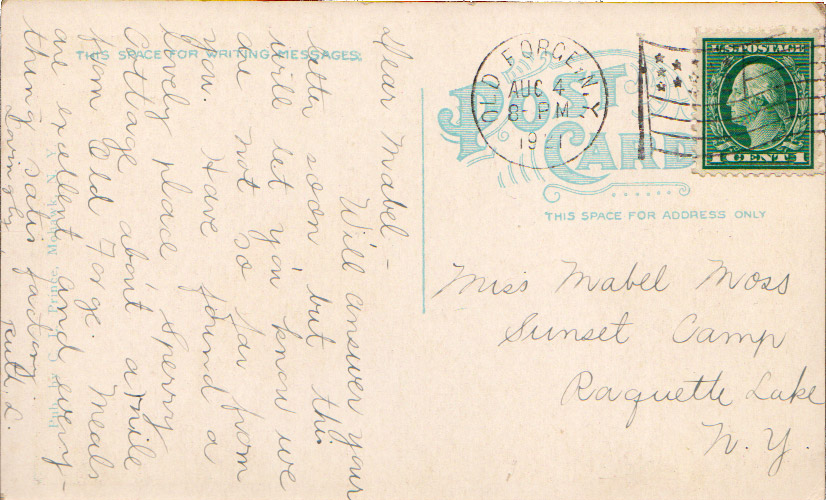 THIS SPACE FOR WRITING MESSAGES
Dear Mabel -
Will answer your
letter soon but this
will let you know we
are not so far from
you. Have found a
lovely place Sperry
Cottage about a mile
from Old Forge. Meals
are excellent and every-
thing satisfactory.
Lovingly,
Ruth L.
Pub. by C. D. Prince, Mohawk, N.Y.
POST CARD
THIS SPACE FOR ADDRESS ONLY
OLD FORGE, N.Y.
AUG 4
8- PM
U.S. POSTAGE
1 CENT 1
Miss Mabel Moss
Sunset Camp
Raquette Lake
N.Y.